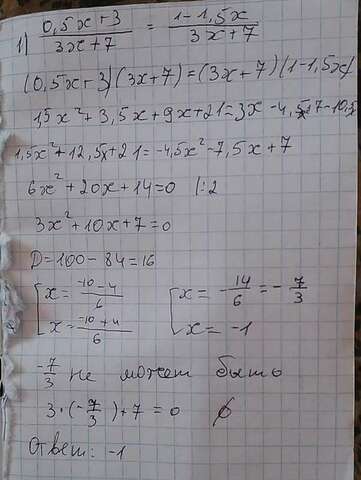 1) (0,5x+3)/(3x+7) = (1-1,5x)/(3x+7)
(0,5x+3)(3x+7)=(3x+7)(1-1,5x)
1,5x²+3,5x+9x+21=3x-4,5x²+7-10,5x
1,5x²+12,5x+21=-4,5x²-7,5x+7
6x²+20x+14=0 |:2
3x²+10x+7=0
D=100-84=16
[x=(-10-4)/6 [x=-14/6=-7/3
x=(-10+4)/6 x=-1
-7/3 не может быть
3·(-7/3)+7=0 ∅
Ответ: -1